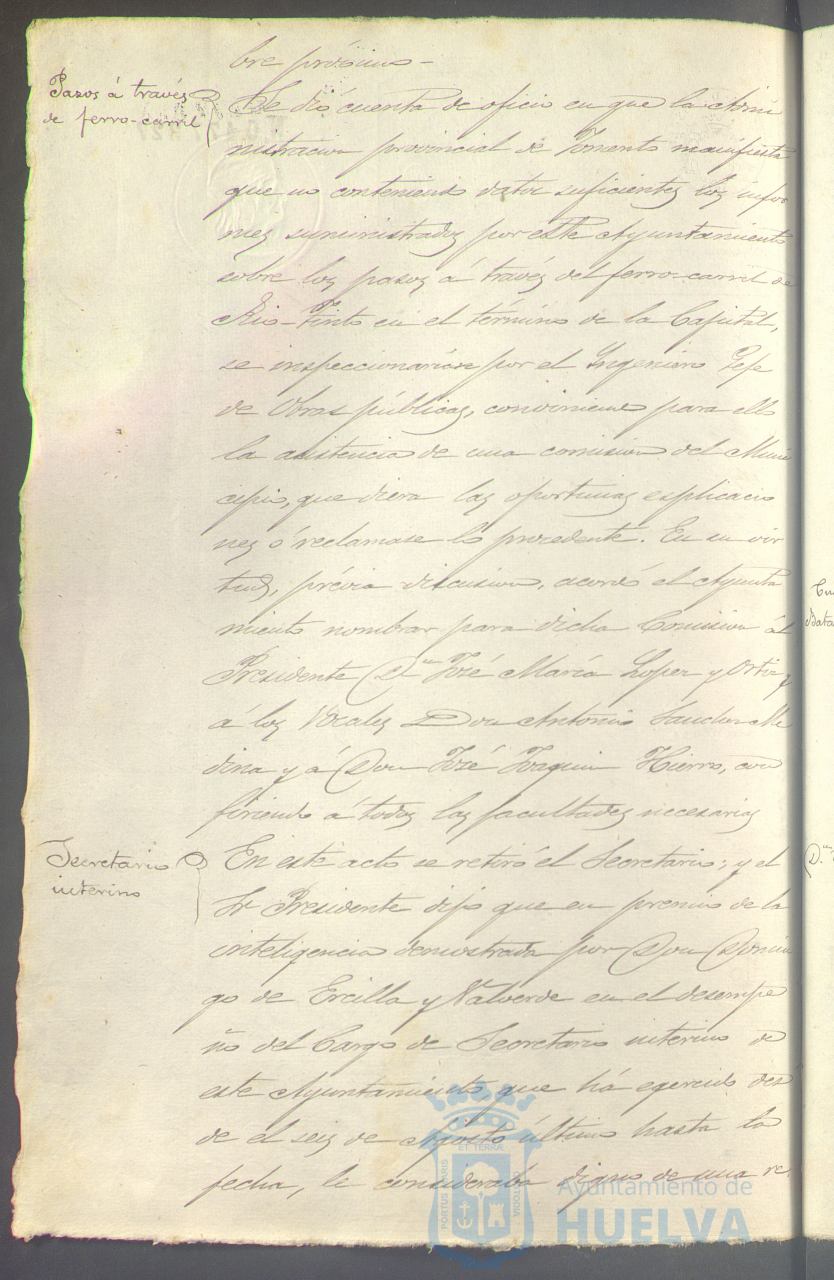 bre próximo-
Pasos á través
de ferro-carril
Se dió cuenta de oficio en que la Admi
nistracion provincial de Fomento manifiesta
que no conteniendo datos suficientes los infor
mes suministrados por este Ayuntamiento
sobre los pasos á través del ferro-carril de
Rio-Tinto en el término de la Capital,
se inspeccionarían por el Ingeniero Gefe
de Obras públicas, conviniendo para ello
la asistencia de una comision del Muni
cipio, que diera las oportunas esplicacio
nes ó reclamase lo procedente. En su vir
tud, prévia discusion, acordó el Ayunta
miento nombrar para dicha Comision al
Presidente Dn José María Lopez y Ortiz y
á los Vocales Don Antonio Sanchez Me
dina y á Don José Joaquin Hierro, con
firiendo á todos las facultades necesarias
Secretario
interino
En este acto se retiró el Secretario; y el
Sr Presidente dijo que en premio de la
inteligencia demostrada por Don Domin
go de Ercilla y Valverde en el desempe
ño del Cargo de Secretario interino de
este Ayuntamiento que há egercido des
de el seis de Agosto último hasta la
fecha, le consideraba digno de una re
Ayuntamiento de
HUELVA
PORTUS MARIS
ET TERRAE
CUSTODIA